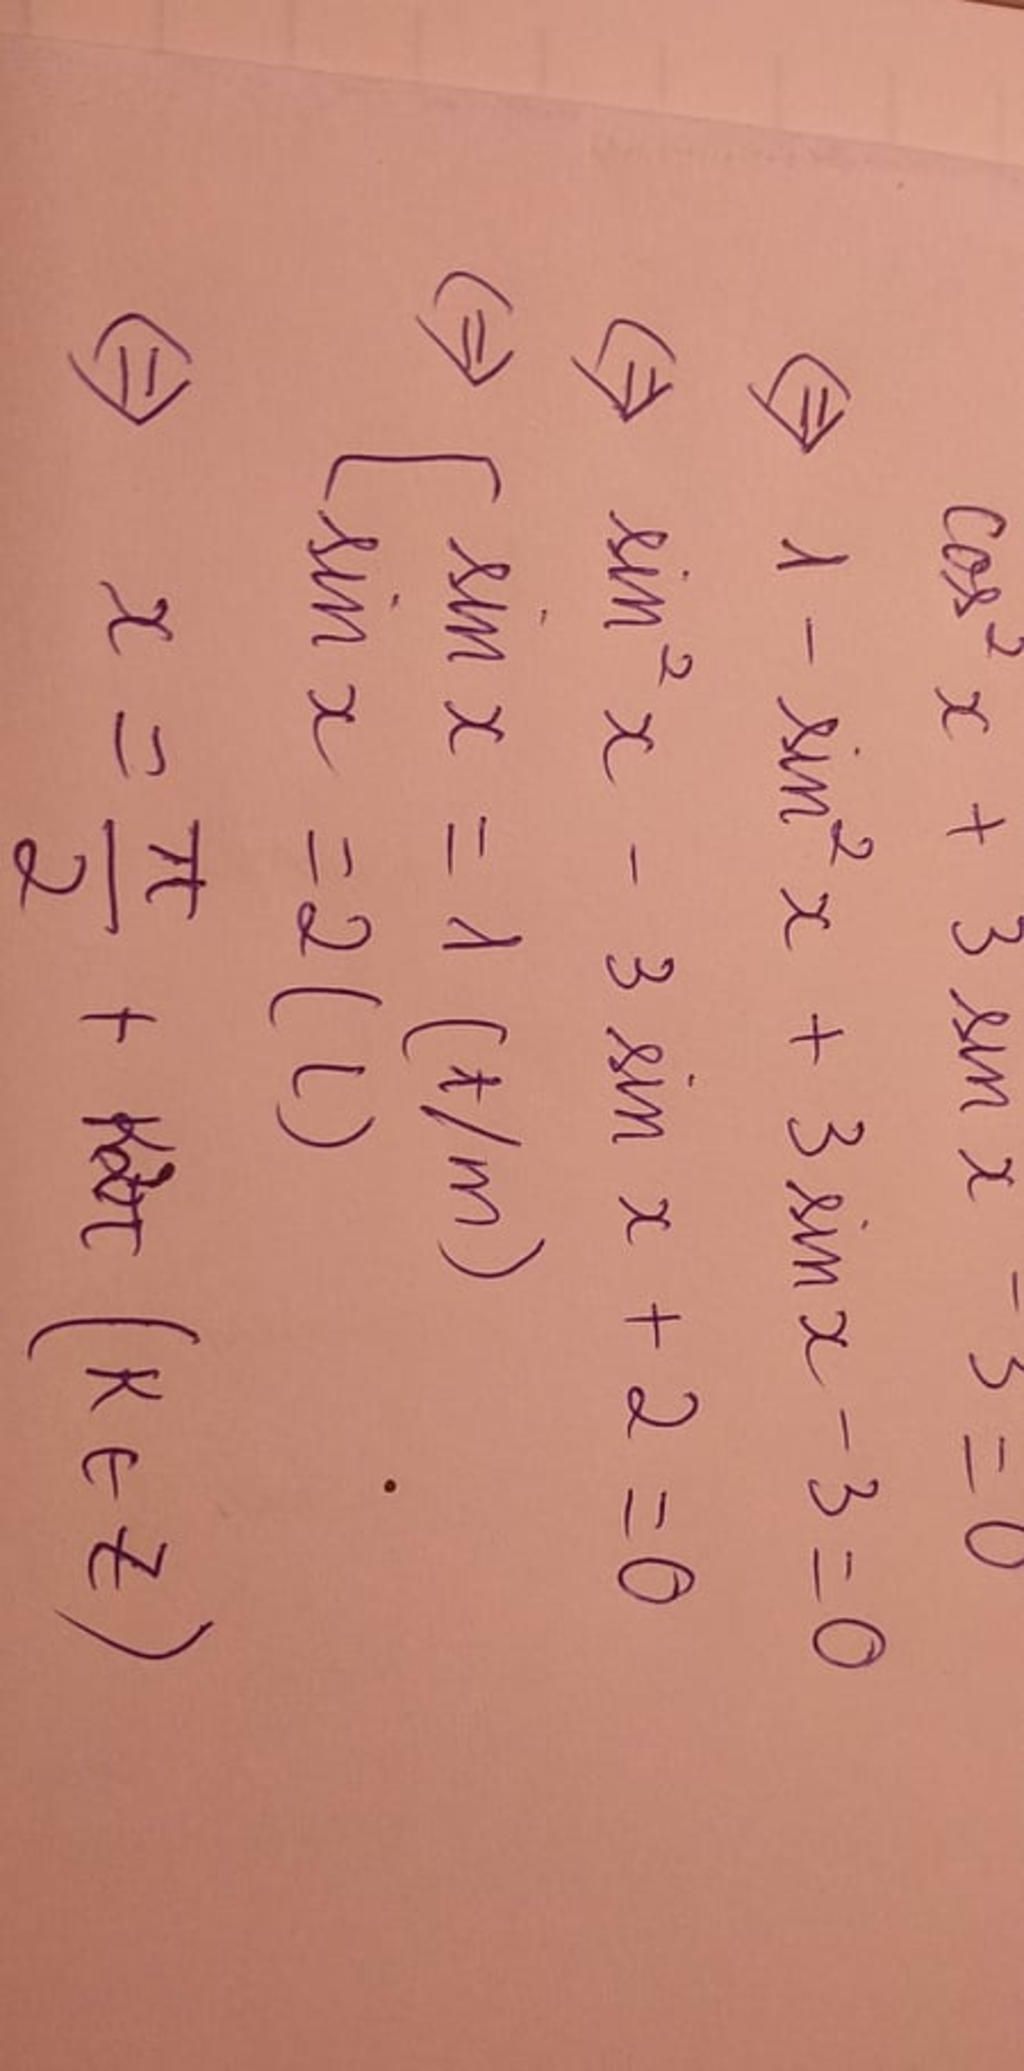 cos²x + 3 sin x - 3 = 0
⇔ 1 - sin²x + 3 sin x - 3 = 0
⇔ sin²x - 3 sin x + 2 = 0
⇔ [ sin x = 1 (t/m)
sin x = 2 (L)
⇔ x = π/2 + k2π (k ∈ Z)